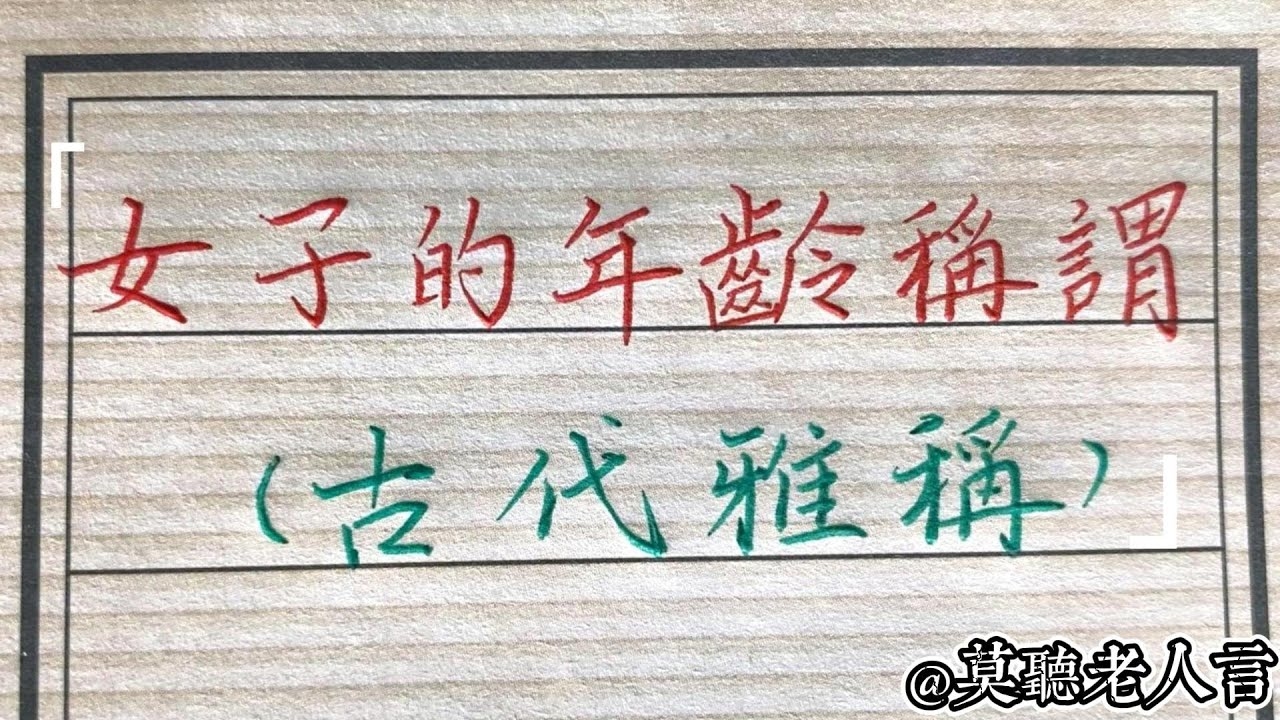 「女子的年齡稱謂
(古代雅稱)」
@莫聽老人言